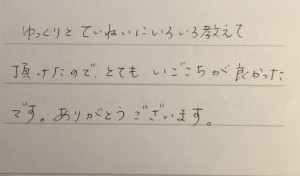 ゆっくりとていねいにいろいろ教えて
頂けたので、とても いごこちが良かった
です。ありがとうございます。